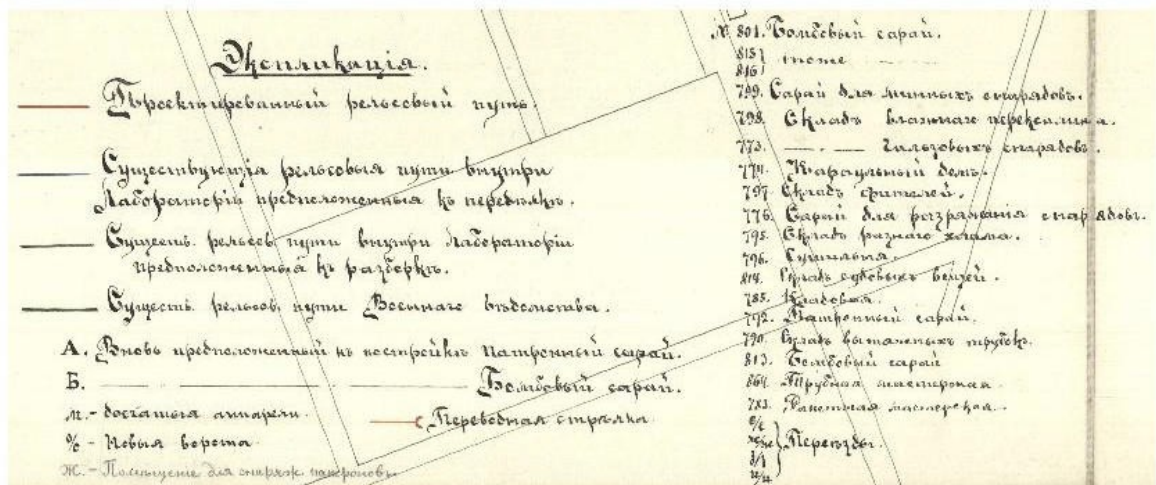 Экспликація.
Проектированный рельсовый путь.
Существующія рельсовыя пути внутри
Лабораторій предположенныя къ передѣлкѣ.
Существ. рельсов. пути внутри Лабораторіи
предположенныя къ разборкѣ.
Существ. рельсов. пути Военнаго вѣдомства.
А. Вновь предположенный къ постройкѣ Патронный сарай.
Б. — · — · — Бомбовый сарай.
м. - досчатыя аппарели.
Переводная стрѣлка
% - Новыя ворота
Ж. - Помѣщеніе для снаряж. патроновъ.
№ 801. Бомбовый сарай.
815
816 } тоже
799. Сарай для минныхъ снарядовъ.
798. Складъ влажнаго пироксилина.
773. — · — Гильзовыхъ снарядовъ.
774. Караульный домъ.
797. Складъ фитилей.
776. Сарай для разряжанія снарядовъ.
795. Складъ разнаго хлама.
796. Сушильня.
814. Складъ судовыхъ вещей.
785. Кладовая.
792. Патронный сарай.
790. Складъ вытяжныхъ трубокъ.
813. Бомбовый сарай
864. Трубная мастерская.
783. Ракетная мастерская.
} Переѣзды.